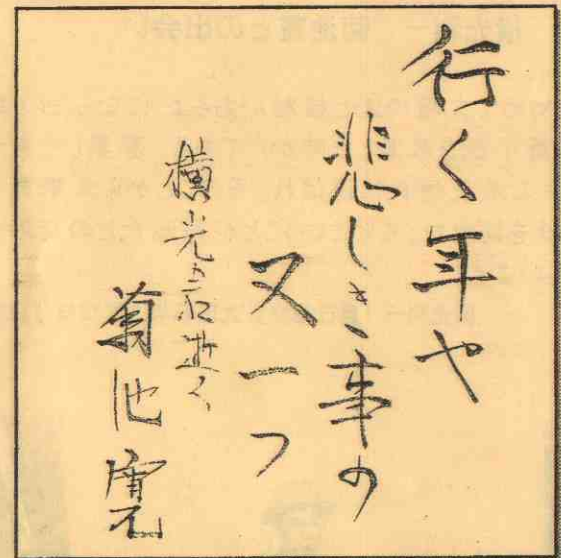 行く年や
悲しき事の
又一つ
横光君逝く
菊池寛